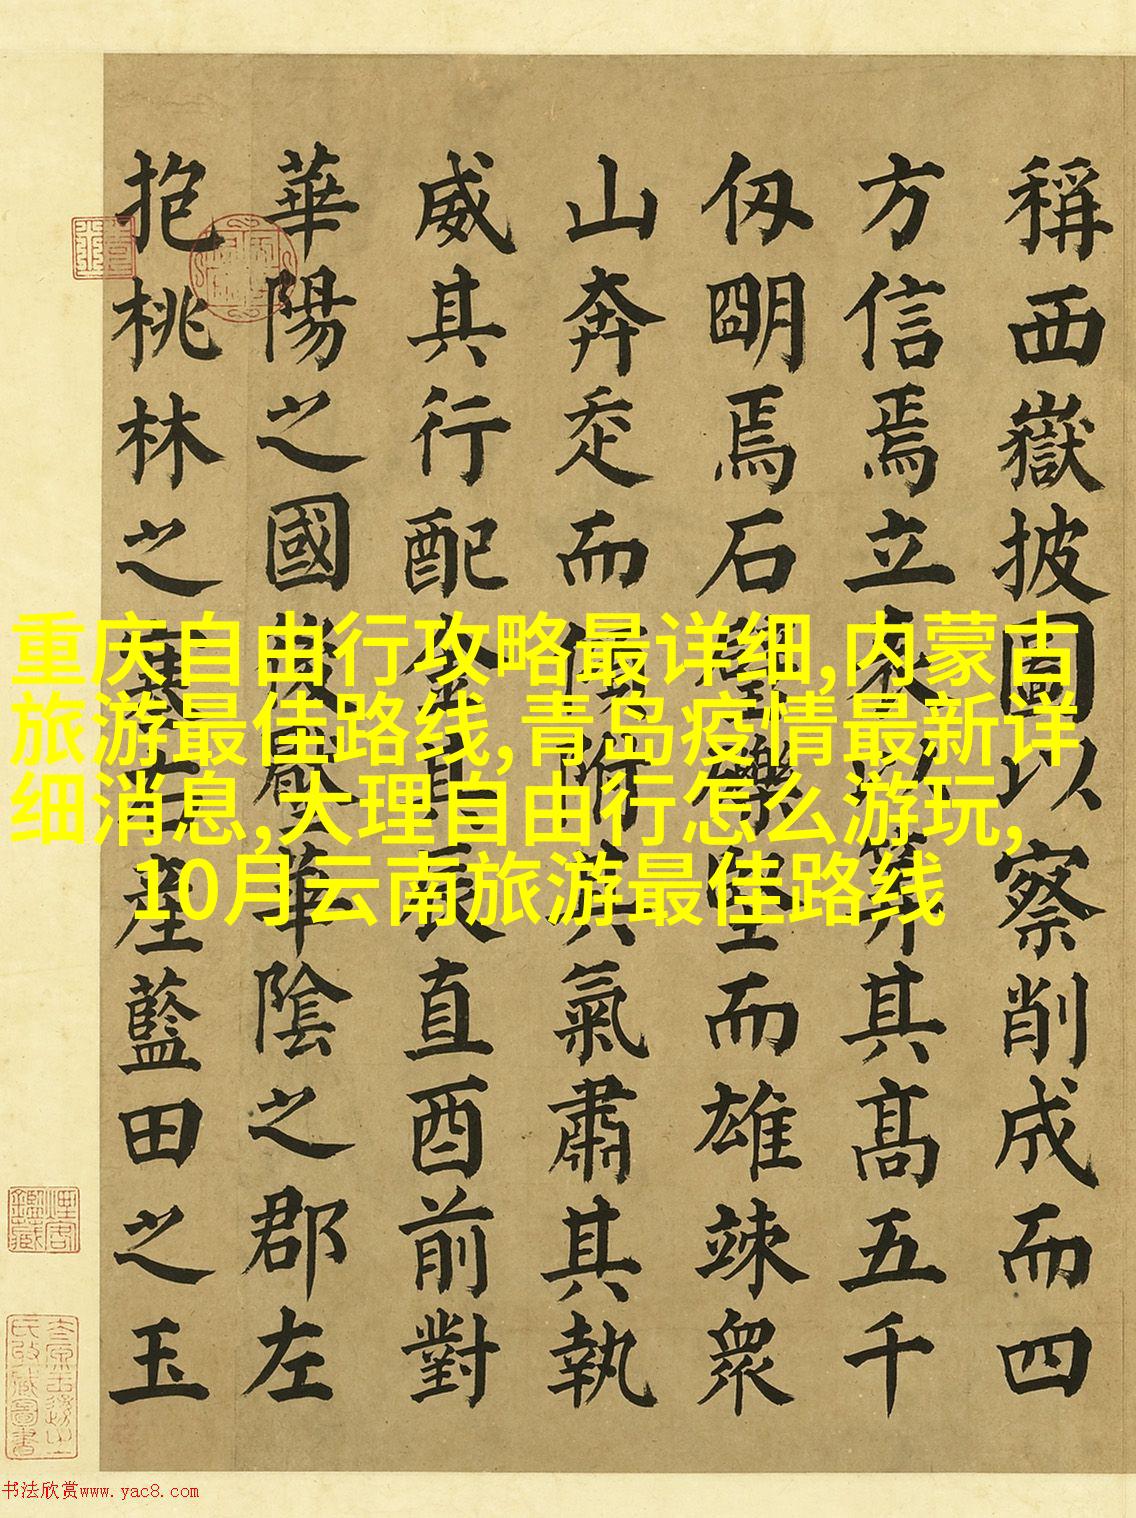 稱西嶽披圖以察削成而四
方信焉立以筭其髙五千
仞明焉石壁而雄竦眾
山奔走而附其氣肅其執
威其行配金其辰直酉前對
華陽之國後壓華陰之郡左
抱桃林之塞右產藍田之玉
重庆自由行攻略最详细,内蒙古
旅游最佳路线,青岛疫情最新详
细消息,大理自由行怎么游玩,
10月云南旅游最佳路线
书法欣赏www.yac8.com